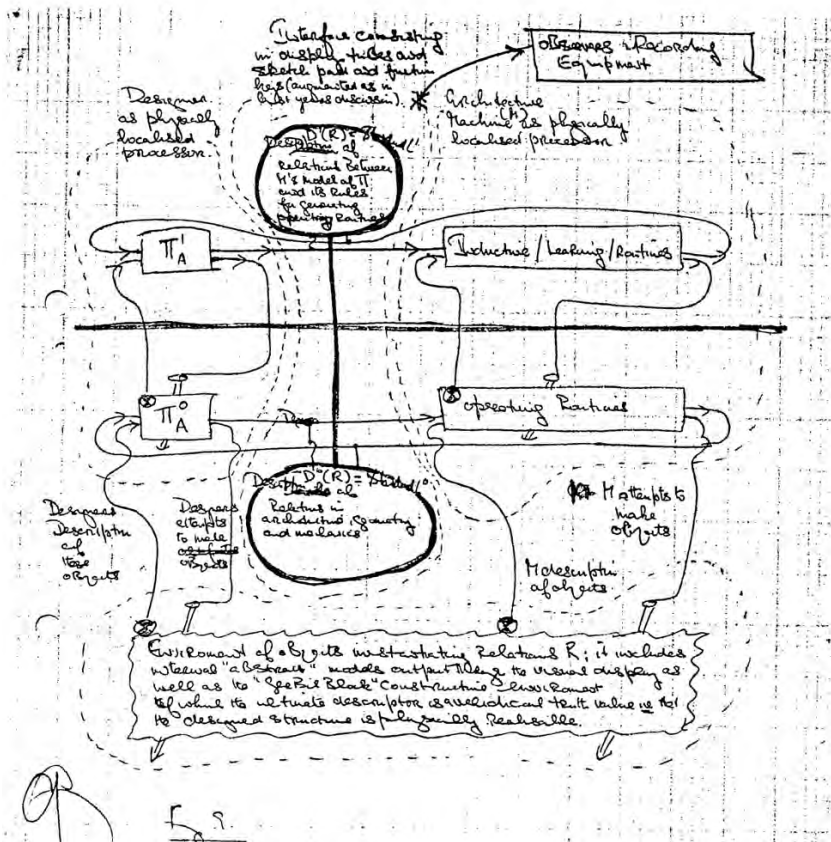 Interface consisting
in display tubes and
sketch pads and function
keys (augmented as in
last years discussion).
Observers & Recording
Equipment
Designer
as physically
localised
processor.
Architecture
Machine (M) as physically
localised processor
D'(R) =
Description of
Relations Between
M's model of Π
and its Rules
for Generating
operating Routines
Π¹A
Inductive / Learning / Routines
Π⁰A
Operating Routines
D⁰(R) =
Description of
Relations in
architecture, geometry
and mechanics
Designers
Description
of
these
objects
Designers
attempts
to make
objects
M attempts to
make
objects
M description
of objects
Environment of objects instantiating Relations R; it includes
internal "abstract" models output to visual display as
well as the "Block" Construction Environment
of which the ultimate descriptor is a veridical truth value
the designed structure is physically Realisable.
Fig 9.